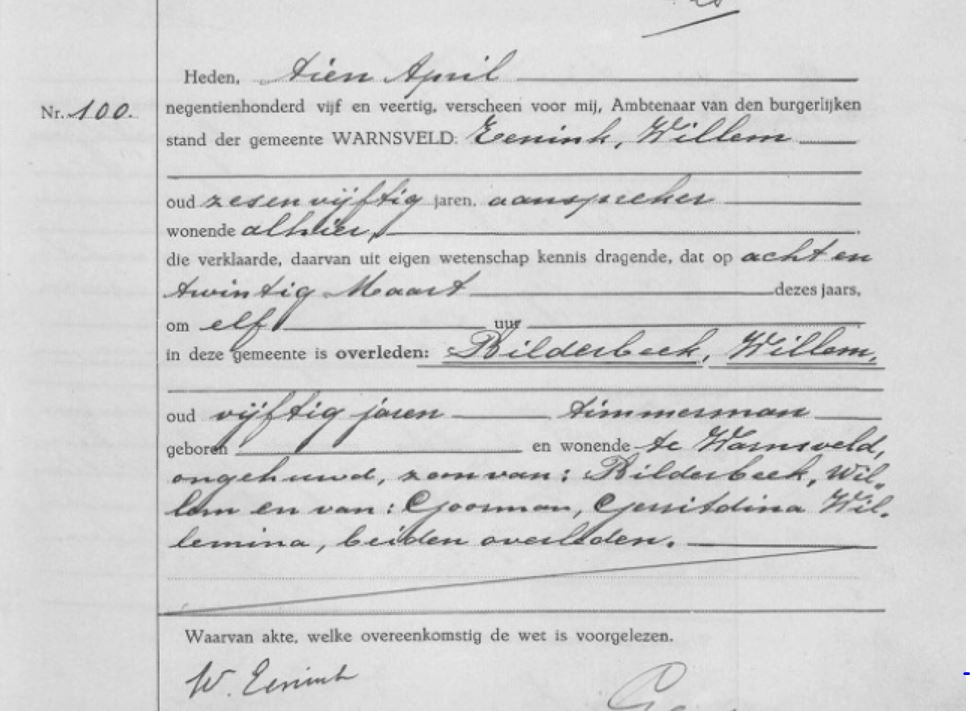 Heden, tien April
Nr. 100.
negentienhonderd vijf en veertig, verscheen voor mij, Ambtenaar van den burgerlijken
stand der gemeente WARNSVELD: Eenink, Willem
oud zesenvijftig jaren, aanspreker
wonende alhier,
die verklaarde, daarvan uit eigen wetenschap kennis dragende, dat op acht en
twintig Maart dezes jaars,
om elf uur
in deze gemeente is overleden: Bilderbeek, Willem,
oud vijftig jaren timmerman
geboren en wonende te Warnsveld,
ongehuwd, zoon van: Bilderbeek, Wil-
lem en van: Goosman, Gerritdina Wil-
lemina, beiden overleden.
Waarvan akte, welke overeenkomstig de wet is voorgelezen.
W. Eenink